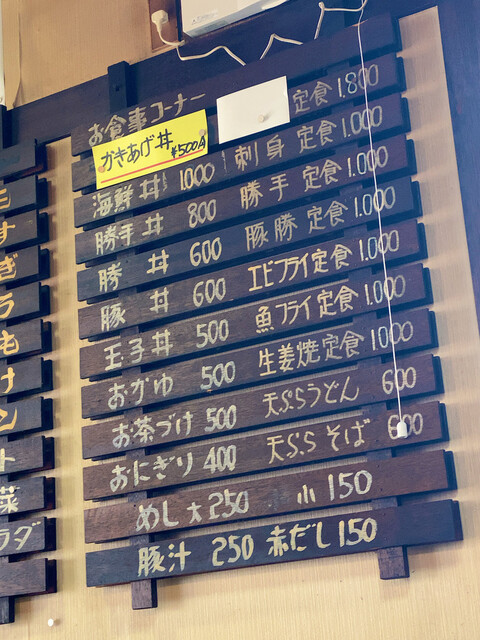 お食事コーナー
定食 1.800
かきあげ丼 ¥500円
海鮮丼 1.000 刺身定食 1.000
勝手丼 800 勝手定食 1.000
勝丼 600 豚勝定食 1.000
豚丼 600 エビフライ定食 1.000
玉子丼 500 魚フライ定食 1.000
おかゆ 500 生姜焼定食 1000
お茶づけ 500 天ぷらうどん 600
おにぎり 400 天ぷらそば 600
めし 大 250 小 150
豚汁 250 赤だし 150
す
ぎ
う
も
け
ン
ト
菜
ラダ